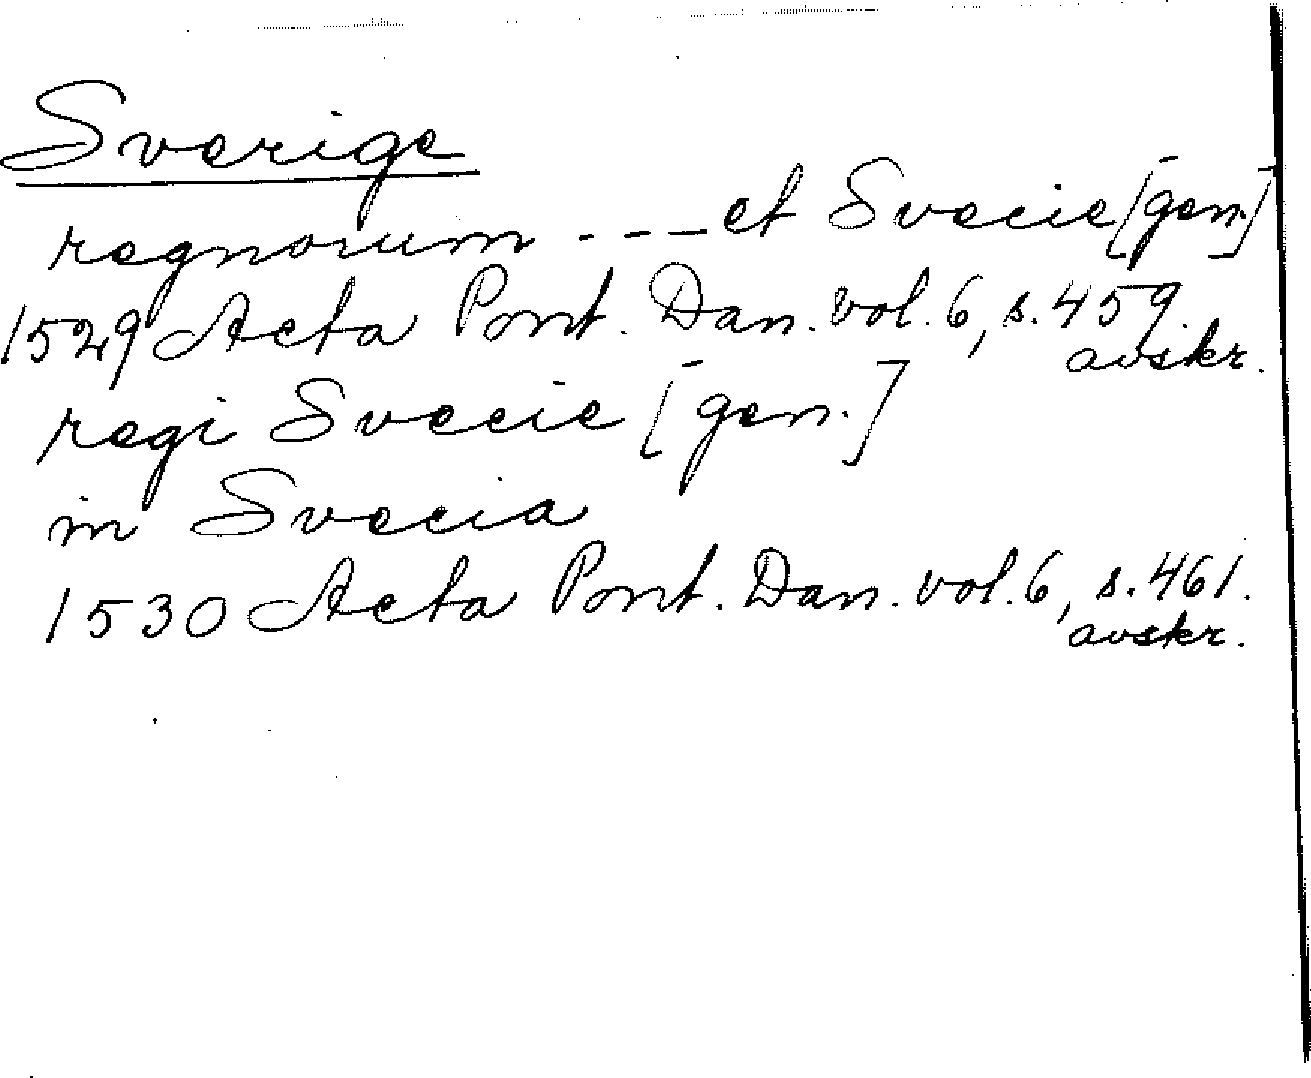 Sverige
regnorum --- et Svecie [gen.]
1529 Acta Pont. Dan. vol. 6, s. 459.
avskr.
regi Svecie [gen.]
in Svecia
1530 Acta Pont. Dan. vol. 6, s. 461.
avskr.